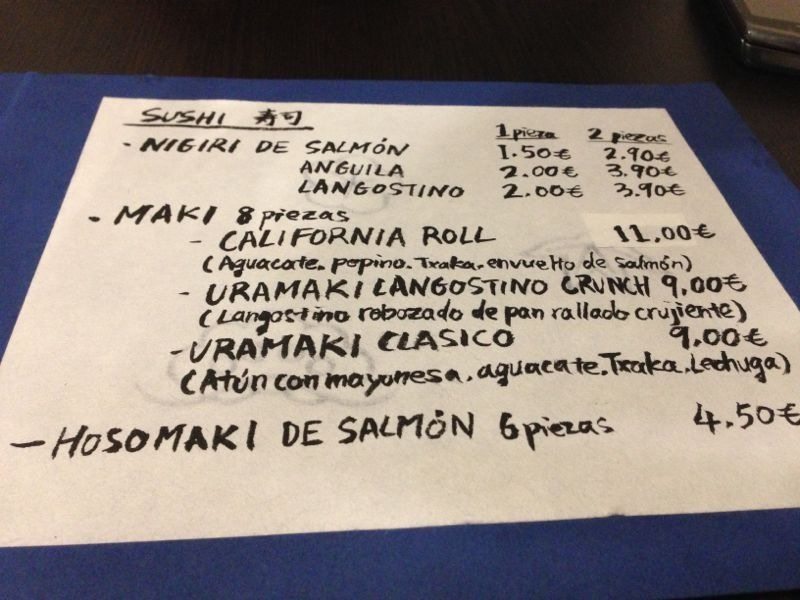 SUSHI 寿司
1 pieza 2 piezas
· NIGIRI DE SALMÓN 1.50€ 2.90€
ANGUILA 2.00€ 3.90€
LANGOSTINO 2.00€ 3.90€
· MAKI 8 piezas
- CALIFORNIA ROLL 11.00€
(Aguacate. pepino. Txaka. envuelto de salmón)
- URAMAKI LANGOSTINO CRUNCH 9,00€
(Langostino robozado de pan rallado crujiente)
- URAMAKI CLASICO 9.00€
(Atún con mayonesa, aguacate. Txaka. Lechuga)
- HOSOMAKI DE SALMÓN 6 piezas 4.50€